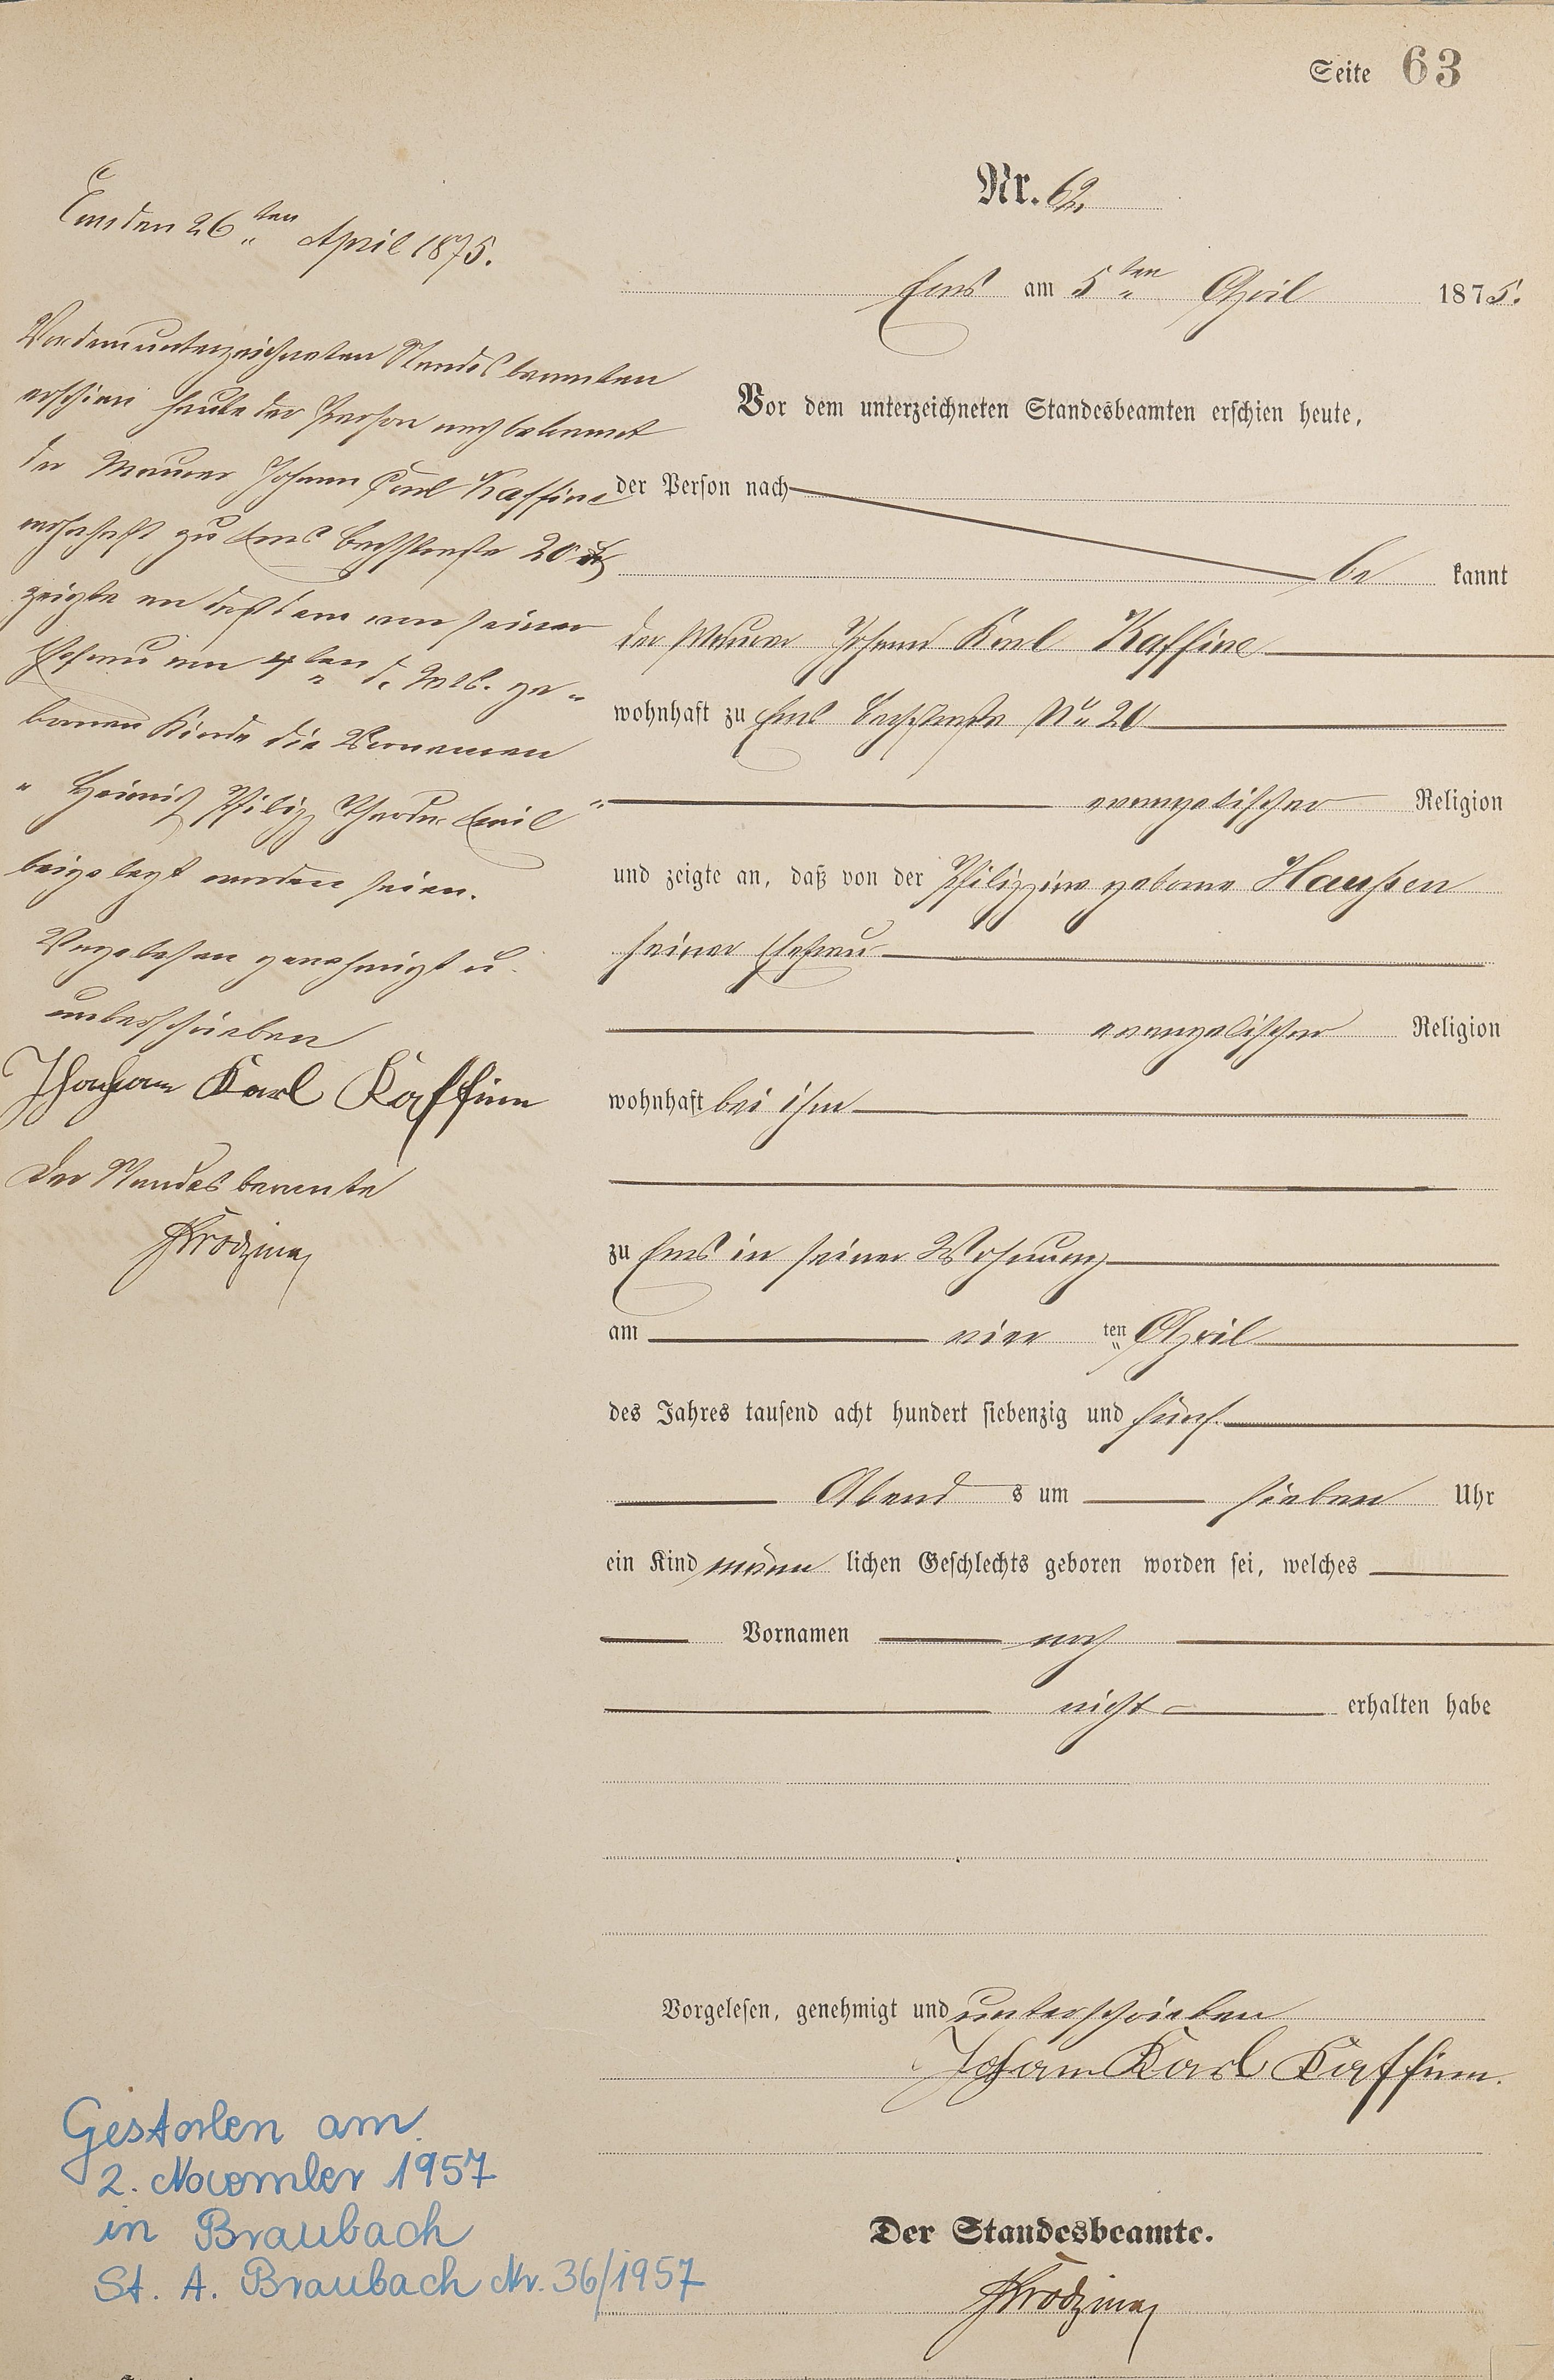 Seite 63
Nr. 62.
Ems am 5ten April 1875.
Vor dem unterzeichneten Standesbeamten erschien heute,
der Person nach
be kannt
der Maurer Johann Karl Kaffine
wohnhaft zu Ems Bachstraße No 20
evangelischer Religion
und zeigte an, daß von der Philippine geborne Haußen
seiner Ehefrau
evangelischer Religion
wohnhaft bei ihm
zu Ems in seiner Wohnung
am vier ten April
des Jahres tausend acht hundert siebenzig und fünf
Abend s um sieben Uhr
ein Kind männ lichen Geschlechts geboren worden sei, welches
Vornamen noch
nicht erhalten habe
Vorgelesen, genehmigt und unterschrieben
Johann Karl Kaffine.
Der Standesbeamte.
Ems den 26ten April 1875.
Vor dem unterzeichneten Standesbeamten
erschien heute der Person nach bekannt
der Maurer Johann Carl Kaffine
wohnhaft zu Ems Bachstraße 20
zeigte an daß dem von seiner
Ehefrau am 4ten d. Mts. ge"
borenen Kinde die Vornamen
" Heinrich Philipp Theodor Emil "
beigelegt worden seien.
Vorgelesen genehmigt u.
unterschrieben
Karl Kaffine
Der Standesbeamte
Gestorben am
2. November 1957
in Braubach
St. A. Braubach Nr. 36/1957